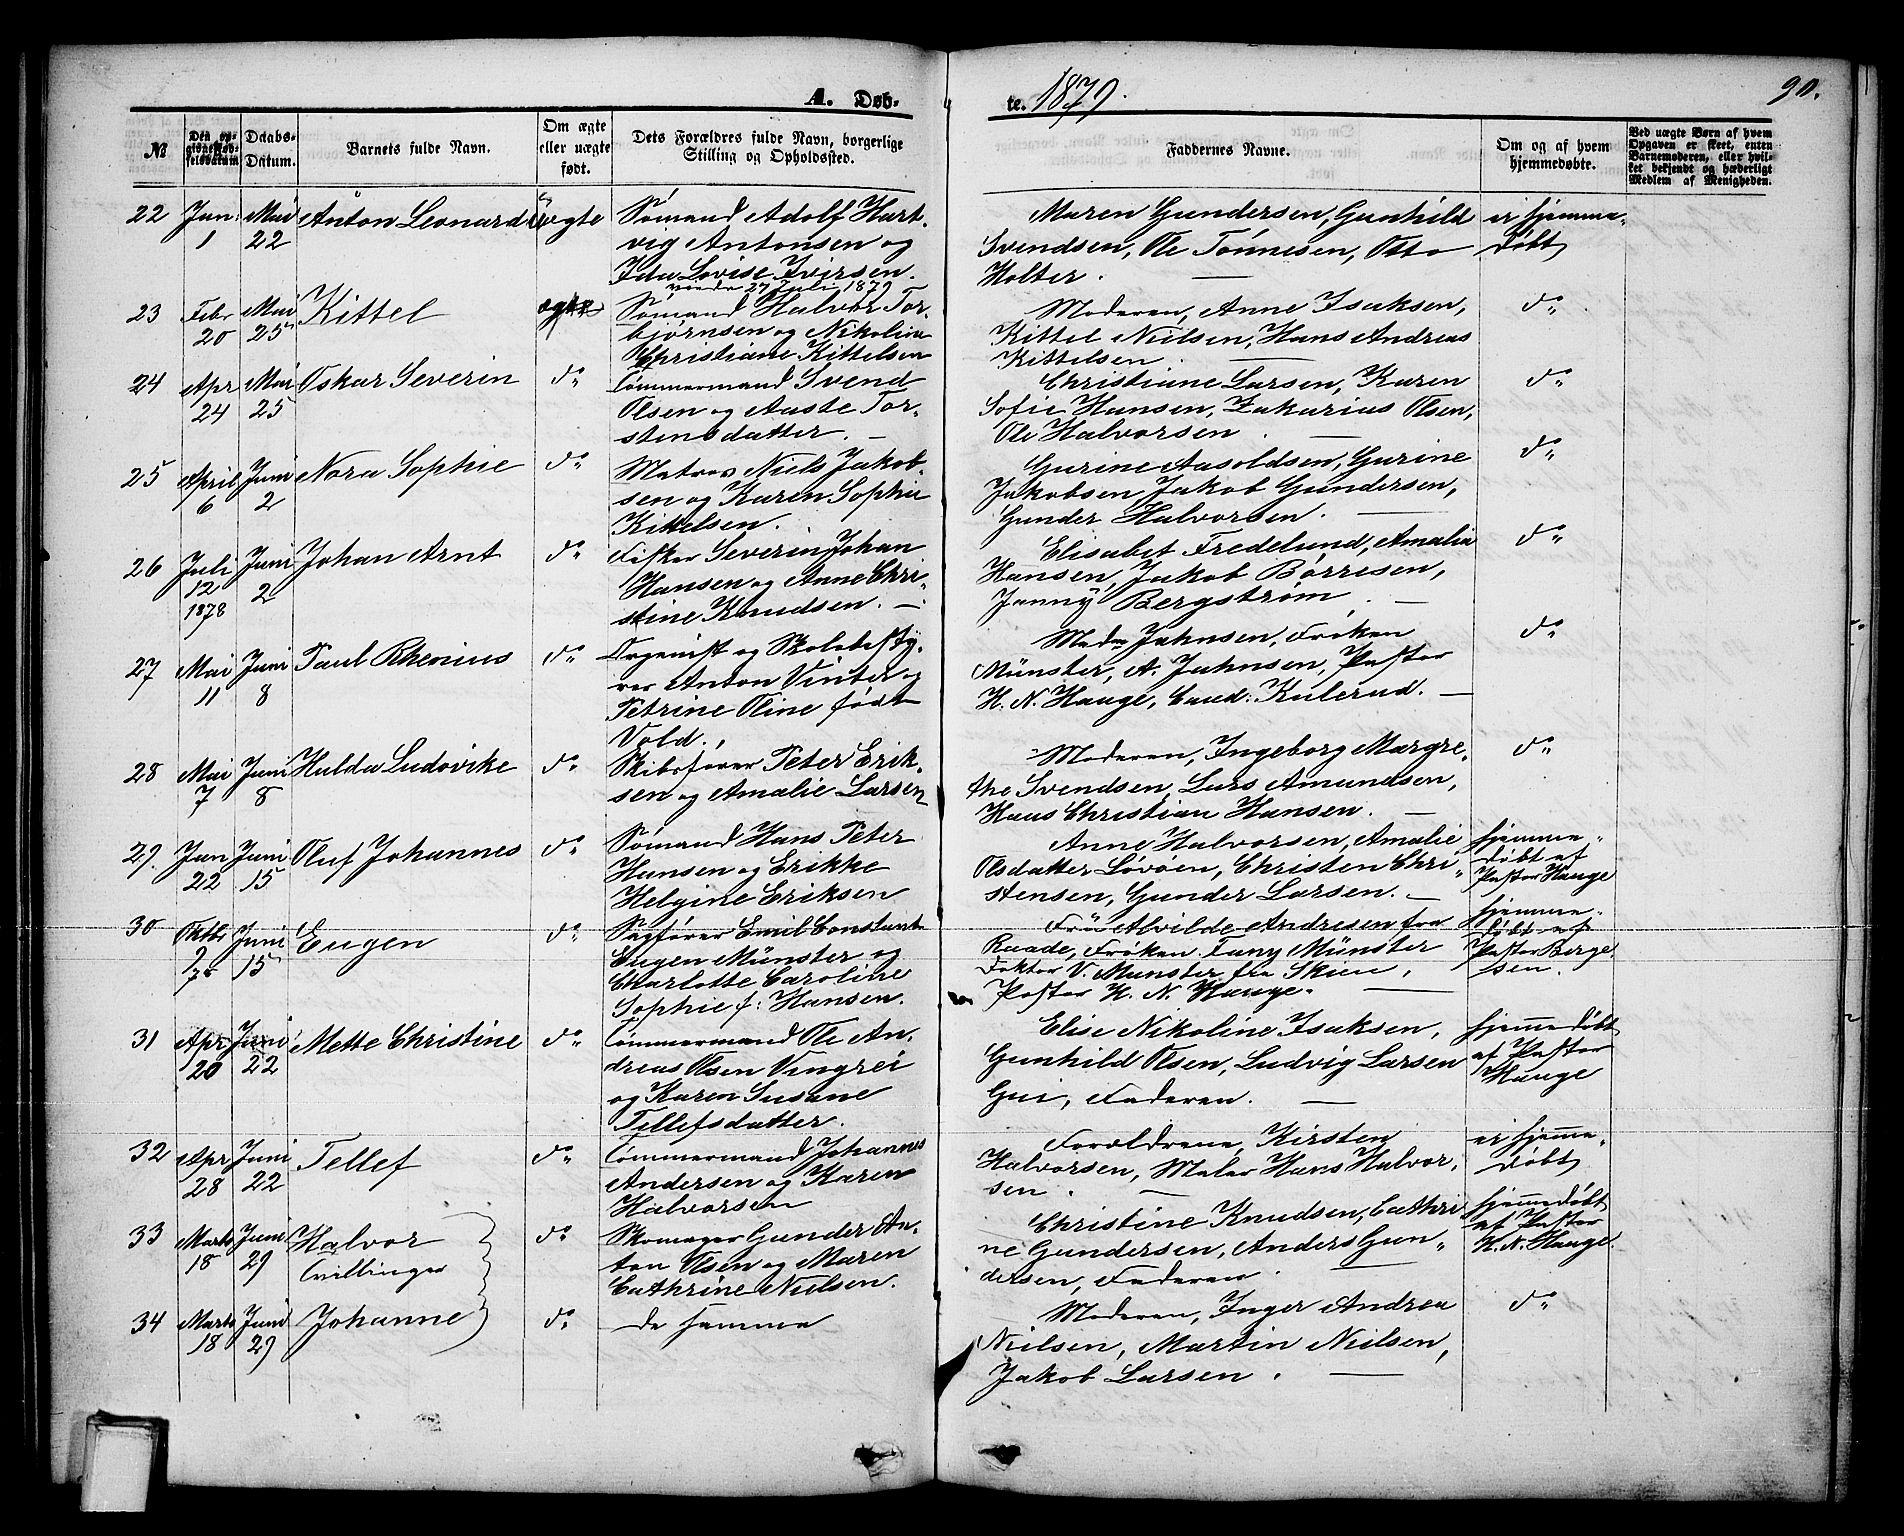 A. Døb-
te. 1879.
90.
№
Den op-
givne Fød-
selsdatum
Daabs-
Datum.
Barnets fulde Navn.
Om ægte
eller uægte
født.
Dets Forældres fulde Navn, borgerlige
Stilling og Opholdssted.
Faddernes Navne.
Om og af hvem
hjemmedøbte.
Ved uægte Børn af hvem
Opgaven er skeet, enten
Barnemoderen, eller hvil-
ket bekjendt og hæderligt
Medlem af Menigheden.
22 Jan: 1 Mai 22 Anton Leonard ægte
Sømand Adolf Hart-
vig Antonsen og
Ida Lovise Iversen.
Maren Gundersen, Gunhild
Svendsen, Ole Tønnesen, Otto
Holter.
er hjemme-
døbt
23 Febr 20 Mai 25 Kittel ægte
27 Juli 1879
Sømand Halvor Tor-
bjørnsen og Nikoline
Christiane Kittelsen
Moderen, Anne Isaksen,
Kittel Nielsen, Hans Andreas
Kittelsen.
do
24 Apr 24 Mai 25 Oskar Severin do
Tømmermand Svend
Olsen og Aaste Tor-
stensdatter.
Christiane Larsen, Karen
Sofie Hansen, Zakarias Olsen,
Ole Halvorsen.
do
25 April 6 Juni 2 Nora Sophie do
Matros Niels Jakob-
sen og Karen Sophie
Kittelsen.
Gurine Aasoldsen, Gurine
Jakobsen, Jakob Gundersen,
Gunder Halvorsen.
do
26 Juli 12 1878 Juni 2 Johan Arnt do
Fisker Severin Johan
Hansen og Anne Chri-
stine Knudsen.
Elisabet Fredelund, Amalia
Hansen, Jakob Børresen,
Janny Bergstrøm.
do
27 Mai 11 Juni 8 Paul Rhenius do
Organist og Skolebesty-
rer Anton Vinter og
Petrine Oline født
Vold.
Mad: Jahnsen, Frøken
Münster, A. Jahnsen, Pastor
H. N. Hauge, Cand: Kulerud.
do
28 Mai 7 Juni 8 Hulda Ludovike do
Skibsfører Peter Erik-
sen og Amalie Larsen
Moderen, Ingeborg Margre-
the Svendsen, Lars Amundsen,
Hans Christian Hansen.
do
29. Jan 22 Juni 15 Oluf Johannes do
Sømand Hans Peter
Hansen og Erikke
Helgine Eriksen
Anne Halvorsen, Amalie
Olsdatter Løvøen, Christen Chri-
stensen, Gunder Larsen.
hjemme-
døbt af
Pastor Hauge
30 Oktbr 9 78 Juni 15 Eugen do
Sagfører Emil Constant
Eugen Münster og
Charlotte Caroline
Sophie f: Hansen.
Frü Alvilde Andresen fra
Raade, Frøken Fany Münster
Doktor V. Münster fra Skien,
Pastor H. N. Hauge.
hjemme-
døbt af
Pastor Berge-
sen.
31 Apr 20 Juni 22 Mette Christine do
Tømmermand Ole An-
dreas Olsen Vingrei
og Karen Susane
Tellefsdatter.
Elise Nikoline Isaksen,
Gunhild Olsen, Ludvig Larsen
Gui, Faderen.
hjemmedøbt
af Pastor
Hauge
32 Apr 28 Juni 22 Tellef do
Tømmermand Johannes
Andersen og Karen
Halvorsen
Forældrene, Kirsten
Halvorsen, Maler Hans Halvor-
sen.
er hjemme-
døbt
33 Marts 18 Juni 29 Halvor do
Tvillinger
Skomager Gunder An-
ton Olsen og Maren
Cathrine Nielsen.
Christine Knudsen, Cathri
ne Gundersen, Anders Gun-
dersen, Faderen.
hjemmedøbt
af Pastor
H. N. Hauge.
34 Marts 18 Juni 29 Johanne do
de samme
Moderen, Inger Andrea
Nielsen, Martin Nielsen,
Jakob Larsen.
do